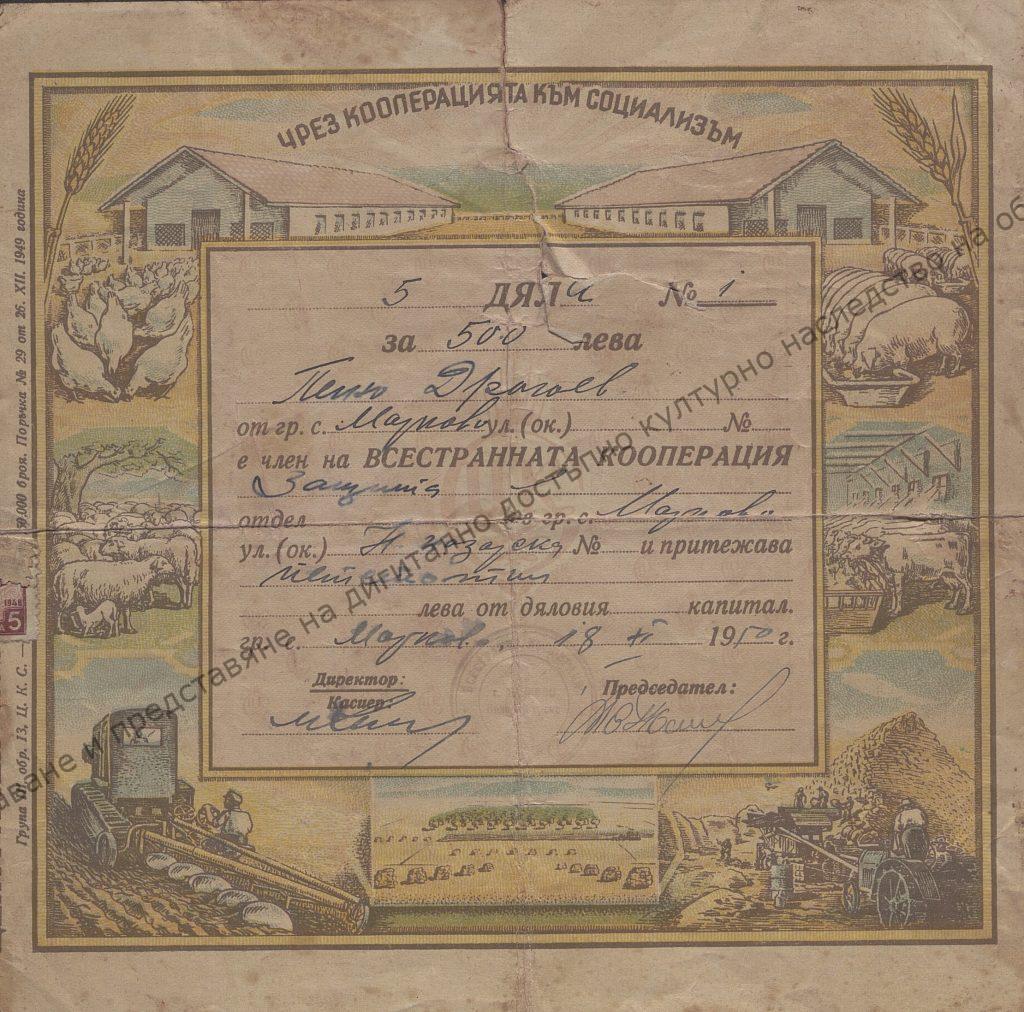 ЧРЕЗ КООПЕРАЦИЯТА КЪМ СОЦИАЛИЗЪМ
5 ДЯЛИ № 1
за 500 лева
Пеню Драгоев
от гр. с. Марково ул. (ок.) №
е член на ВСЕСТРАННАТА КООПЕРАЦИЯ
Защита
отдел гр. с. Марково
ул. (ок.) № и притежава
петстотин
лева от дяловия капитал.
гр. с. Марково, 18 XI 1950 г.
Директор: Председател:
Касиер:
Група IV, обр. 13, Ц. К. С. — 0.000 броя. Поръчка № 29 от 26. XII. 1949 година
1948
5
ване и представяне на дигитално достъпно културно наследство на об